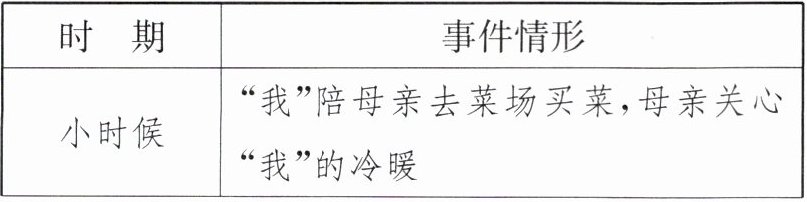 时 期 事件情形
小时候 “我”陪母亲去菜场买菜,母亲关心
“我”的冷暖